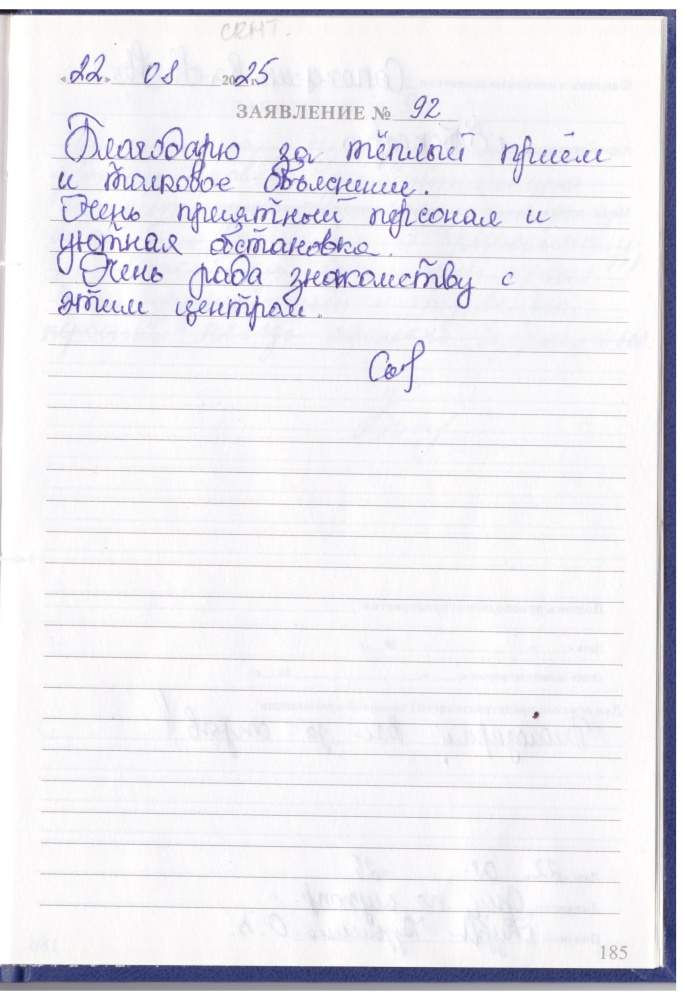 сент.
«22» 08 2025
ЗАЯВЛЕНИЕ № 92
Благодарю за тёплый приём
и толковое объяснение.
Очень приятный персонал и
уютная обстановка.
Очень рада знакомству с
этим центром.
185